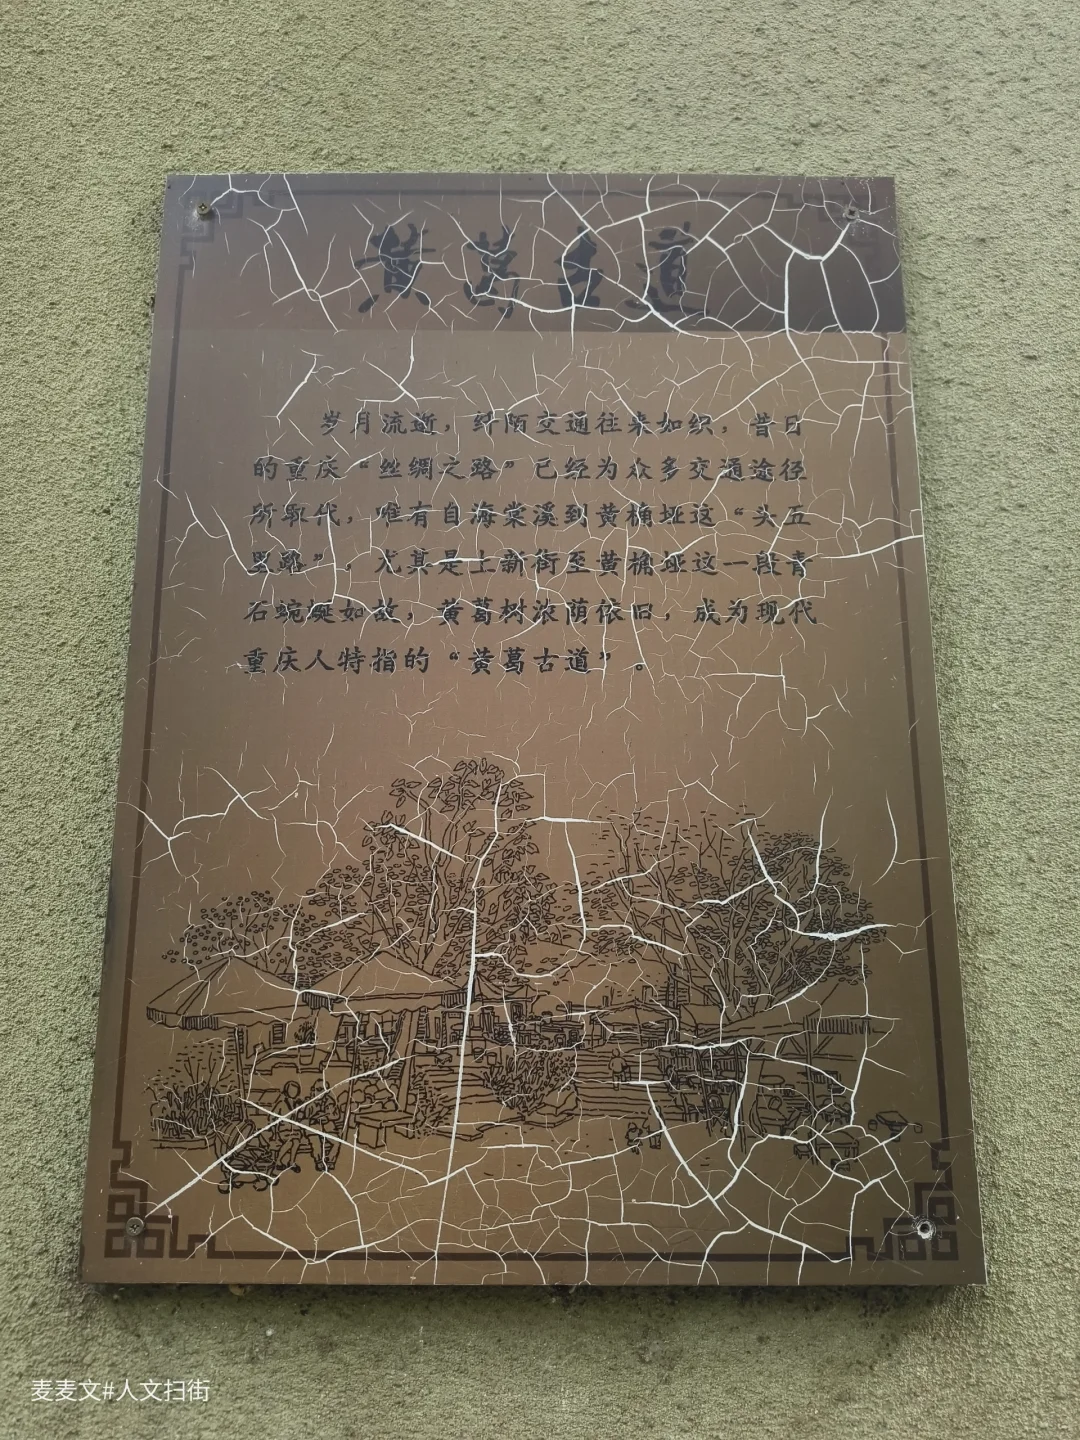 黄葛古道
岁月流逝，纤陌交通往来如织，昔日
的重庆“丝绸之路”已经为众多交通途径
所取代，唯有自海棠溪到黄桷垭这“头五
里路”，尤其是上新街至黄桷垭这一段青
石蜿蜒如故，黄葛树浓荫依旧，成为现代
重庆人特指的“黄葛古道”。
麦麦文#人文扫街